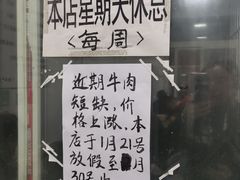 本店星期天休息
<每周>
近期牛肉
短缺，价
格上涨，本
店于1月21号
放假至月
30号止